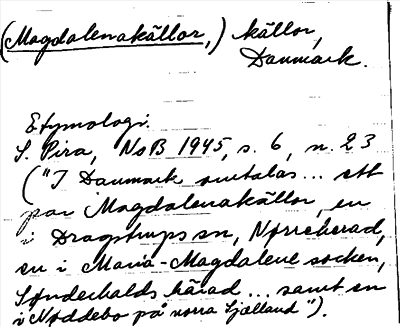 (Magdalenakällor,) källor,
Danmark.
Etymologi.
S. Pira, NoB 1945, s. 6, n. 23
("I Danmark omtalas... ett
par Magdalenakällor, en
i Dragstrups sn, Nørreherad,
en i Maria-Magdalene socken,
Sønderhalds härad ... samt en
i Nøddebo på norra Själland").